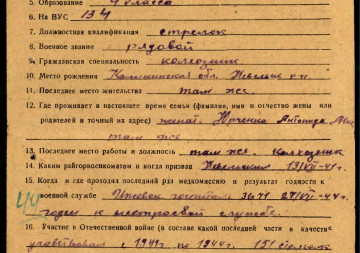 5. Образование 4 класса
6. На ВУС 134
7. Должностная квалификация стрелок
8. Военное звание рядовой
9. Гражданская специальность колхозник
10. Место рождения Калининская обл. Невельск. р-н.
11. Последнее место жительства там же.
12. Где проживает в настоящее время семья (фамилия, имя и отчество жены или
родителей и точный их адрес) женат. Юрченко
там же
13. Последнее место работы и должность там же. Колхозник
14. Каким райгорвоенкоматом и когда призван Невельским 13/VII-41г.
15. Когда и где проходил последний раз медкомиссию и результат годности к
военной службе госпиталь 3611 29/VII-44г.
годен к нестроевой службе.
16. Участие в Отечественной войне (в составе какой последней части в качестве
участвовал с 1941г. по 1944г. 151